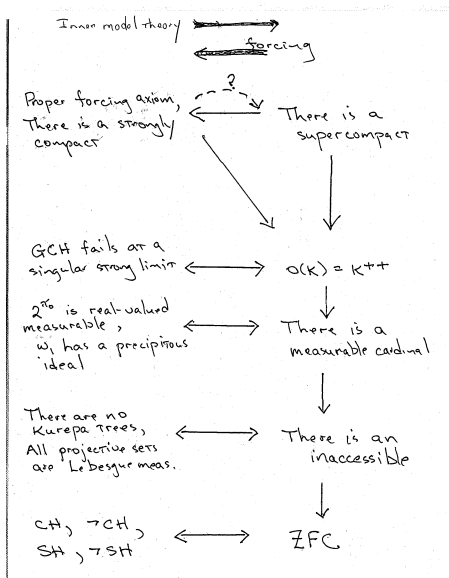 Inner model theory
forcing
?
Proper forcing axiom,
There is a strongly
compact
There is a
supercompact
GCH fails at a
singular strong limit
O(K) = K++
2^ℵ₀ is real-valued
measurable,
ω₁ has a precipitous
ideal
There is a
measurable cardinal
There are no
Kurepa Trees,
All projective sets
are Lebesgue meas.
There is an
inaccessible
CH, ¬CH,
SH, ¬SH
ZFC